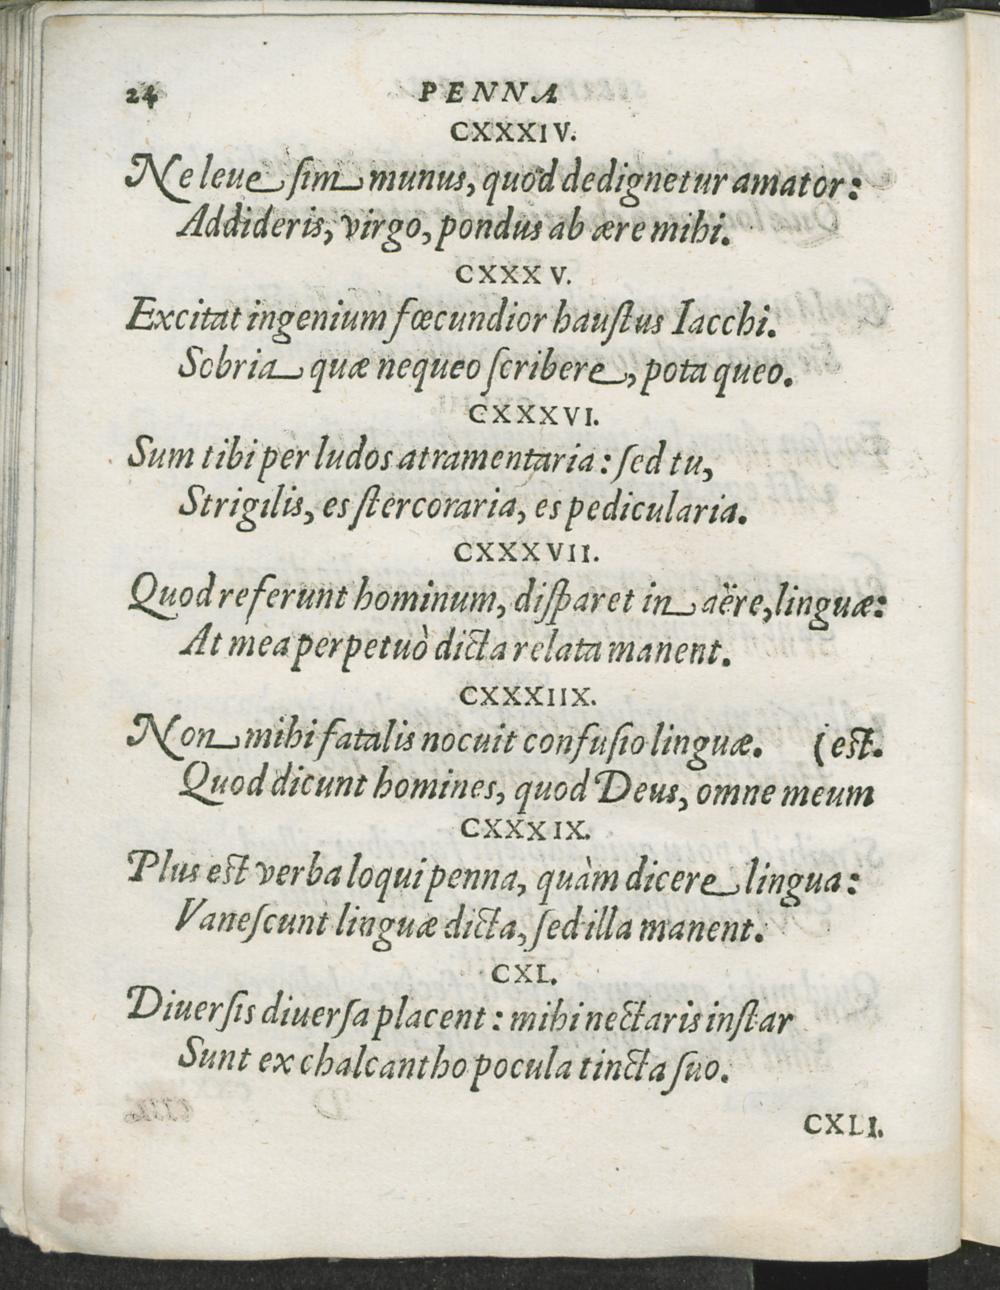 24 PENNA
CXXXIV.
Ne leue sim munus, quod dedignetur amator:
Addideris, virgo, pondus ab ære mihi.
CXXXV.
Excitat ingenium fœcundior haustus Iacchi.
Sobria quæ nequeo scribere, pota queo.
CXXXVI.
Sum tibi per ludos atramentaria: sed tu,
Strigilis, es stercoraria, es pedicularia.
CXXXVII.
Quod referunt hominum, disparet in aëre, linguæ:
At mea perpetuò dicta relata manent.
CXXXIIX.
Non mihi fatalis nocuit confusio linguæ. (est.
Quod dicunt homines, quod Deus, omne meum
CXXXIX.
Plus est verba loqui penna, quàm dicere lingua:
Vanescunt linguæ dicta, sed illa manent.
CXL.
Diuersis diuersa placent: mihi nectaris instar
Sunt ex chalcantho pocula tincta suo.
CXLI.